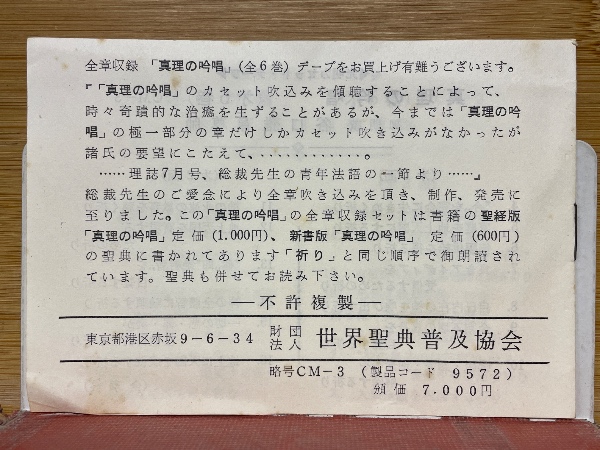 全章収録 「真理の吟唱」(全6巻) テープをお買上げ有難うございます。
『「真理の吟唱」のカセット吹込みを傾聴することによって、
時々奇蹟的な治癒を生ずることがあるが、今までは「真理の吟
唱」の極一部分の章だけしかカセット吹き込みがなかったが
諸氏の要望にこたえて、‥‥‥‥‥‥。
……理誌7月号、総裁先生の青年法語の一節より……』
総裁先生のご愛念により全章吹き込みを頂き、制作、発売に
至りました。この「真理の吟唱」の全章収録セットは書籍の聖経版
「真理の吟唱」定価 (1.000円)、 新書版「真理の吟唱」 定価 (600円)
の聖典に書かれてあります「祈り」と同じ順序で御朗読され
ています。聖典も併せてお読み下さい。
―不許複製―
東京都港区赤坂9-6-34 財団法人 世界聖典普及協会
略号CM-3 (製品コード 9572)
頒価 7.000円